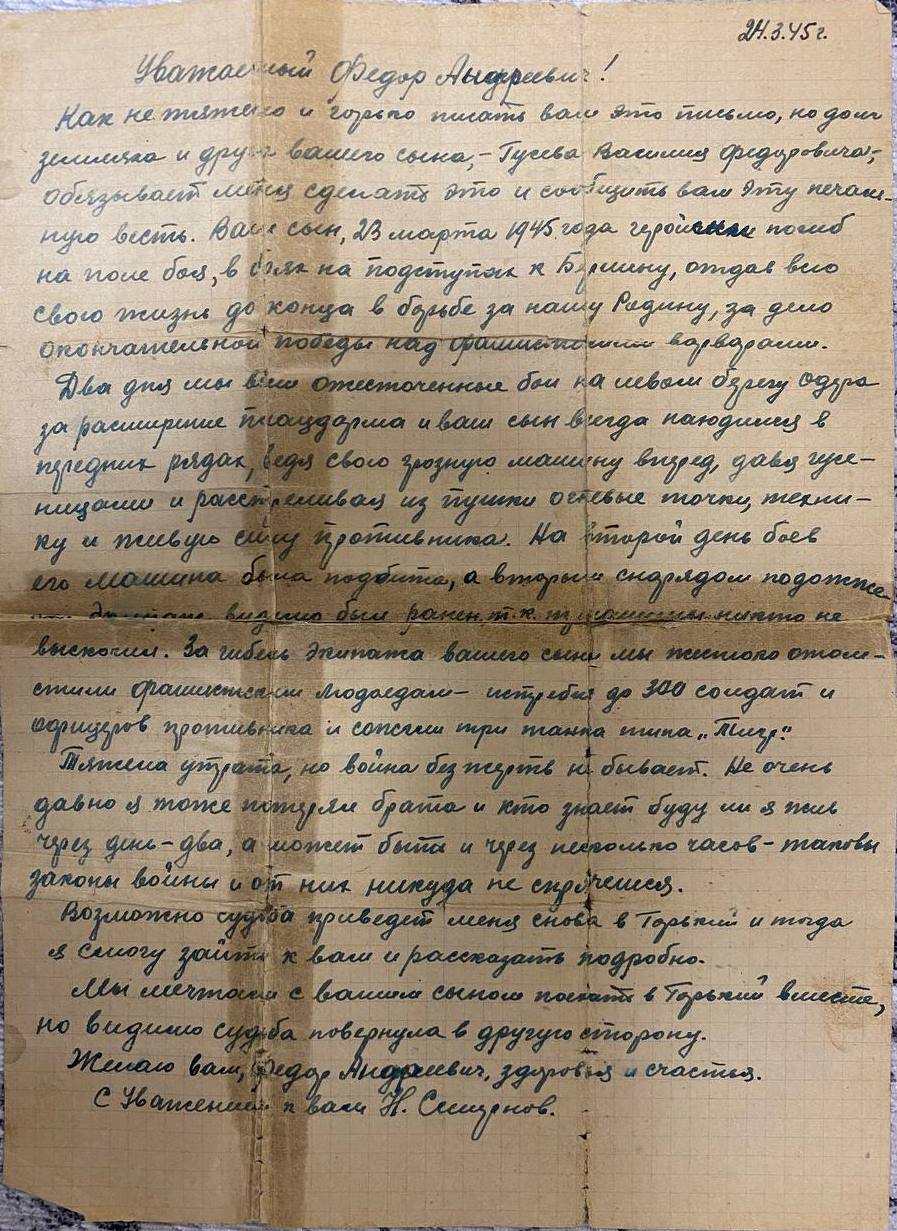 24.3.45г.
Уважаемый Федор Андреевич!
Как не тяжело и горько писать вам это письмо, но долг
земляка и друга вашего сына, – Гусева Василия Федоровича,
обязывает меня сделать это и сообщить вам эту печаль-
ную весть. Ваш сын, 23 марта 1945 года геройски погиб
на поле боя, в боях на подступах к Берлину, отдав всю
свою жизнь до конца в борьбе за нашу Родину, за дело
окончательной победы над фашистскими варварами.
Два дня мы вели ожесточенные бои на левом берегу Одера
за расширение плацдарма и ваш сын всегда находился в
передних рядах, ведя свою грозную машину вперед, давя гусе-
ницами и расстреливая из пушки огневые точки, техни-
ку и живую силу противника. На второй день боев
его машина была подбита, а вторым снарядом подожже
видимо был ранен, т.к. никто не
выскочил. За гибель экипажа вашего сына мы жестоко отом-
стили фашистским людоедам – истребив до 300 солдат и
офицеров противника и сожгли три танка типа „Тигр."
Тяжела утрата, но война без жертв не бывает. Не очень
давно я тоже потерял брата и кто знает буду ли я жив
через день-два, а может быть и через несколько часов – таковы
законы войны и от них никуда не спрячешся.
Возможно судьба приведет меня снова в Горький и тогда
я смогу зайти к вам и рассказать подробно.
Мы мечтали с вашим сыном поехать в Горький вместе,
но видимо судьба повернула в другую сторону.
Желаю вам, Федор Андреевич, здоровья и счастья.
С Уважением к вам Н. Смирнов.